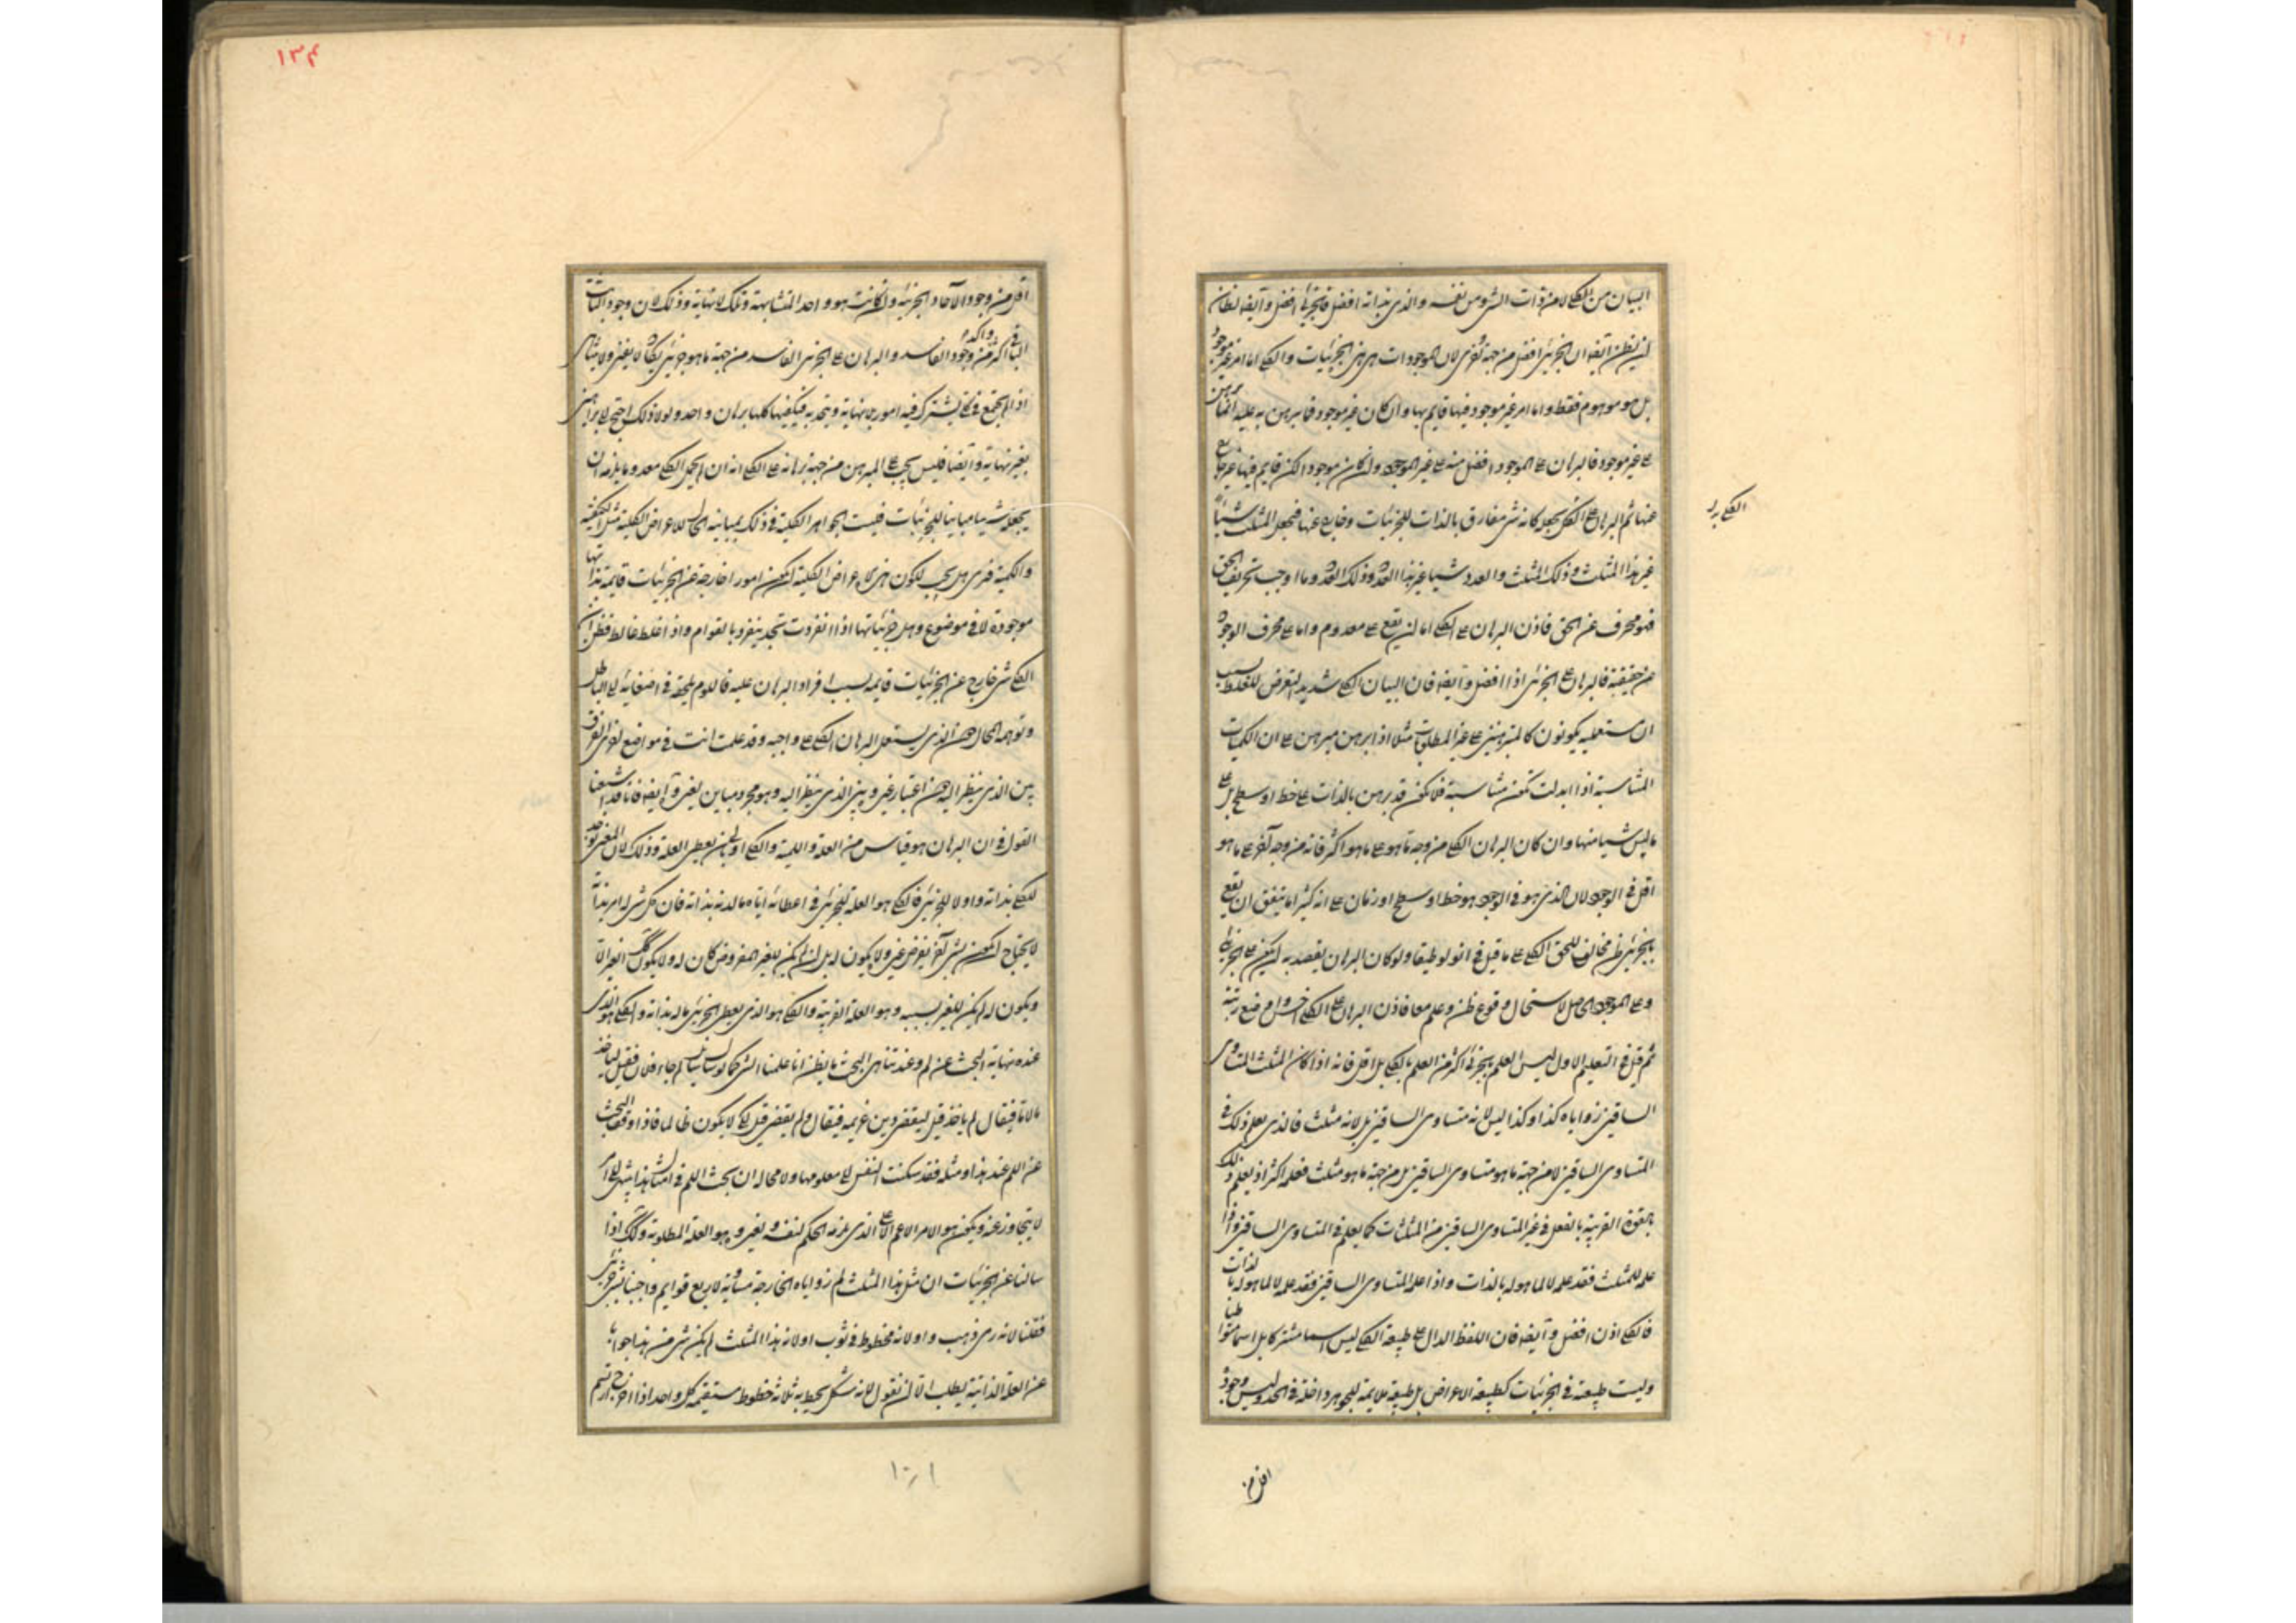 البيان من الكلي لا من ذات الشئ ومن نفسه والذي بذاته افضل فالجزئي افضل وايضا لظان
ان يظن ايضا ان الجزئي افضل من جهة اخرى لان الموجودات هي هذه الجزئيات والكلي اما امر غير موجود
بل هو موهوم فقط واما امر غير موجود فيها قايم بها وان كان غير موجود فما يبرهن به عليه انما يبرهن
على غير موجود فالبرهان على الموجود افضل منه على غير الموجود وان كان موجودا لكن قايم فيها غير خارج
عنها ثم البرهان على الكلي يجعله كانه شئ مفارق بالذات للجزئيات وخارج عنها فيجعل المثلث شيئا
غير هذا المثلث وذلك المثلث والعدد شيئا غير هذا العدد وذلك العدد وما اوجب تحريف الحق
فهو محرف عن الحق فاذن البرهان على الكلي اما ان يقع على معدوم واما على محرف الوجود
عن حقيقته فالبرهان على الجزئي اذا افضل وايضا فان البيان الكلي شديد التعرض للغلط بسبب
ان مستعمليه يكونون كالمتبرهنين على غير المطلوبات مثلا اذا برهن مبرهن على ان الكميات
المتناسبة اذا ابدلت تكون متناسبة فلا يكون قد برهن بالذات على خط او سطح بل على
ما ليس شيئا منها وان كان البرهان الكلي من وجه ما هو على ما هو اكثر فانه من وجه آخر على ما هو
اقل في الوجود لان الذي هو في الوجود هو خط او سطح او زمان على انه كثيرا ما يتفق ان يقع
بالجزئي ظن مخالف للحق الكلي على ما قيل في انولوطيقا ولو كان البرهان يقصد به
وعلى الموجود الحاصل لاستحال وقوع ظن وعلم معا فاذن البرهان على الكلي اخس واوضع رتبة
ثم قيل في التعليم الاول ليس العلم بالجزئي اكثر من العلم بالكلي بل اقل فانه اذا كان المثلث المتساوي
الساقين زواياه كذا وكذا ليس لانه متساوي الساقين بل لانه مثلث فالذي يعلم ذلك في
المتساوي الساقين لا من جهة ما هو متساوي الساقين بل من جهة ما هو مثلث فعلمه اكثر اذ يعلم ذلك
بالقوة القريبة بالفعل في غير المتساوي الساقين من المثلثات كما يعلم في المتساوي الساقين واذا
علمه للمثلث فقد علمه لا لما هو له بالذات واذا علمه المتساوي الساقين فقد علمه لا لما هو له بالذات
فالكلي اذن افضل وايضا فان اللفظ الدال على طبيعة الكلي ليس اسما مشتركا بل اسما متواطيا
وليست طبيعة في الجزئيات كطبيعة الاعراض بل طبيعة ملايمة للجوهر داخلة في الحد وليس وجوده
اقل من
١٣٤
اقل من وجود الآحاد الجزئية وان كانت هو واحد المتشابهة وتلك لا نهاية وذلك لان وجود الثابت
الباقي اكثر وآكد من وجود الفاسد والبرهان على الجزئي الفاسد من جهة ما هو جزئي يكاد لا يغني ولا يتناهى
اذا لم يجتمع في كلي يشترك فيه امور بلا نهاية ويتحد به فيكفيها كلها برهان واحد ولولا ذلك احتيج الى براهين
بغير نهاية وايضا فليس يجب على المبرهن من جهة برهانه على الكلي انه ان لم يجعل الكلي معدوما يلزمه ان
يجعله شيئا مباينا للجزئيات فليست الجواهر الكلية في ذلك بمباينة الحال للاعراض الكلية مثل الكيفية
والكمية فترى هل يجب ان تكون هذه الاعراض الكلية تكون امورا خارجة عن الجزئيات قايمة بذاتها
موجودة لا في موضوع وهل جزئياتها اذا انفردت تتجدد بتفرد بالقوام واذا غلط غالط فظن ان
الكلي شئ خارج عن الجزئيات قايمة بسبب افراد البرهان عليه فاللوم يلحقه في اصغائه الى الباطل
وتوهمه المحال حين الذي يستعمل البرهان الكلي على واجبه وقد علمت انت في مواضع اخرى الفرق
بين الذي ينظر اليه من اعتبار غيره وبين الذي ينظر اليه وهو مجرد مباين لغيره وايضا فانا قد اشبعنا
القول في ان البرهان هو قياس من العلة واللمية والكلي اولى بان يعطي العلة وذلك لان المعنى يوجد
للكلي بذاته واولا للجزئي فالكلي هو العلة للجزئي في اعطائه اياه ما له بذاته فان كل شئ له امر بذاته
لا يحتاج ان يكون شئ آخر يفرض غيره ولا يكون له بل ان لم يكن للغير المفروض كان له ولا يكون للغير الا
ويكون له لم يكن للغير بسببه وهو العلة القريبة والكلي هو الذي يعطي الجزئي ما له بذاته والكلي هو الذي
عنده نهاية البحث عن لم وعند تناهي البحث ما يظن انا علمنا الشئ كما لو سأل سائل لم جاء فلان فقيل لياخذ
مالا ما فيقال لم ياخذ قيل ليقضي دين غريمه فيقال ولم يقضي قيل لكي لا يكون ظالما فاذا وقف البحث
عن اللم عند هذا ومثله فقد سكنت النفس الى معلومها ولا محالة ان بحث اللم في امثال هذا ينتهي الى امر
لا يتجاوز عنه ويكون هو الامر الاعم الاعلى الذي يلزمه الحكم لنفسه ولغيره وهو العلة المطلوبة وكذلك اذا
سالنا عن الجزئيات ان مثل هذا المثلث لم زواياه الخارجة مساوية لاربع قوايم واجبنا بشئ جزئي
فقلنا لانه من ذهب او لانه مخطوط في ثوب او لانه هذا المثلث لم يكن شئ من هذا جوابا
عن العلة الذاتية بطلب الا ان نقول لانه شكل يحيط به ثلاثة خطوط مستقيمة كل واحد اذا اخرج ارتسم